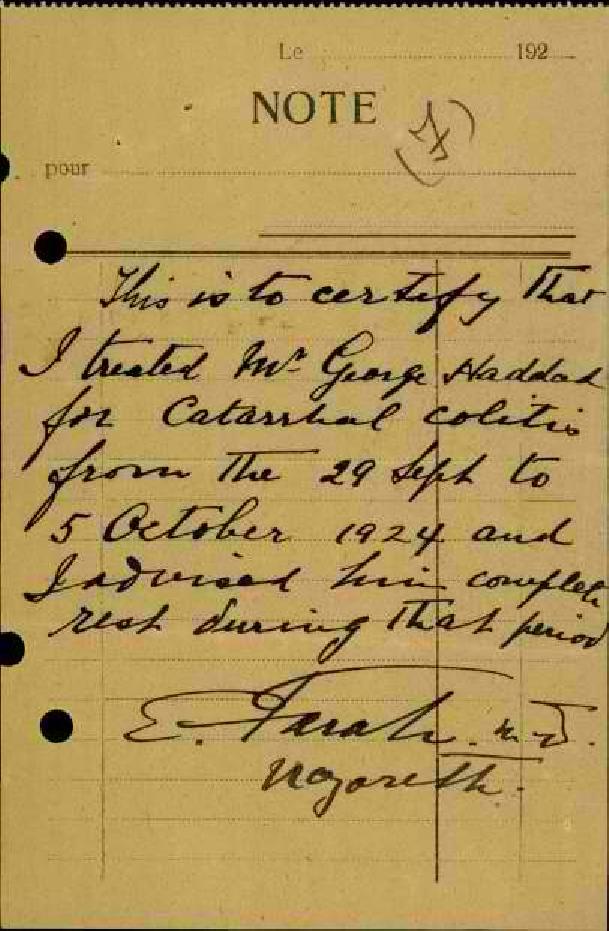 Le 192
NOTE
pour
This is to certify that
I treated Mr George Haddad
for Catarrhal colitis
from the 29 Sept to
5 October 1924 and
I advised him complete
rest during that period
E. Farah. M.D.
Nazareth.